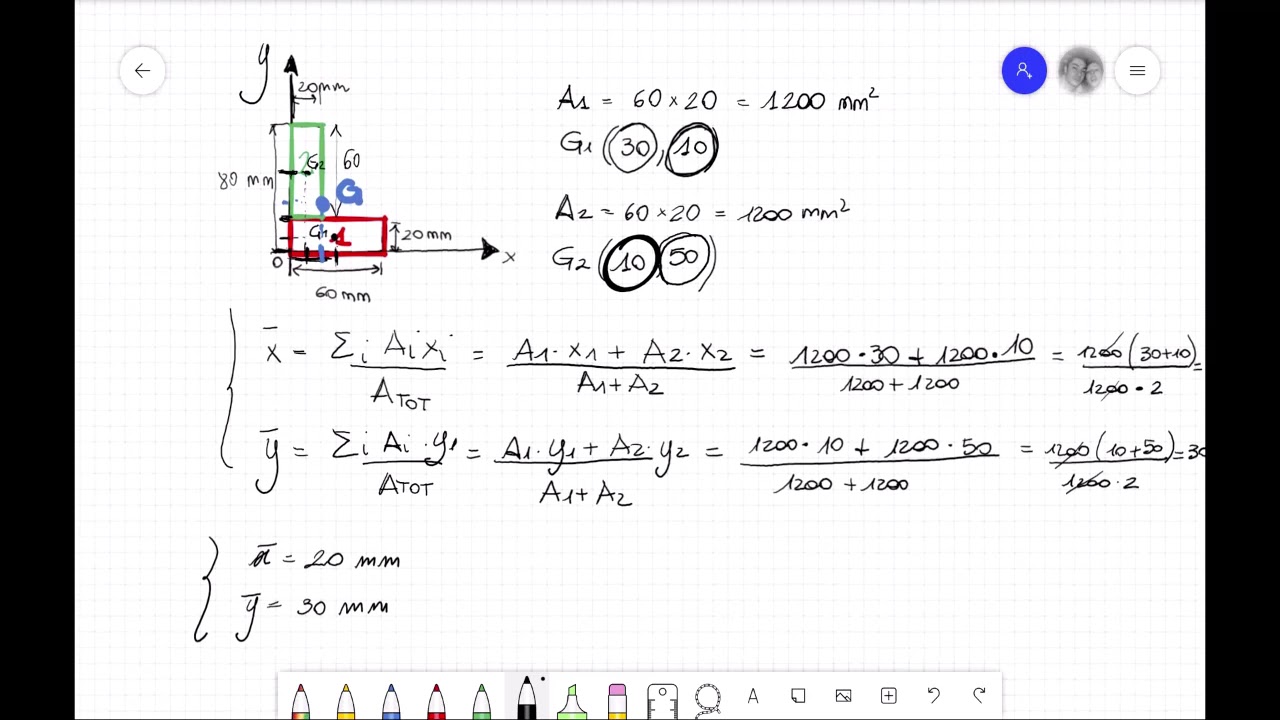 y
20mm
G2
60
80 mm
G
G1
1
20 mm
0
x
60 mm
A1 = 60 × 20 = 1200 mm²
G1 (30, 10)
A2 = 60 × 20 = 1200 mm²
G2 (10, 50)
x̄ = Σi Ai xi / ATOT = A1 · x1 + A2 · x2 / A1 + A2 = 1200 · 30 + 1200 · 10 / 1200 + 1200 = 1200 (30+10) / 1200 · 2 =
ȳ = Σi Ai · yi / ATOT = A1 · y1 + A2 · y2 / A1 + A2 = 1200 · 10 + 1200 · 50 / 1200 + 1200 = 1200 (10+50) / 1200 · 2 = 30
x̄ = 20 mm
ȳ = 30 mm
A